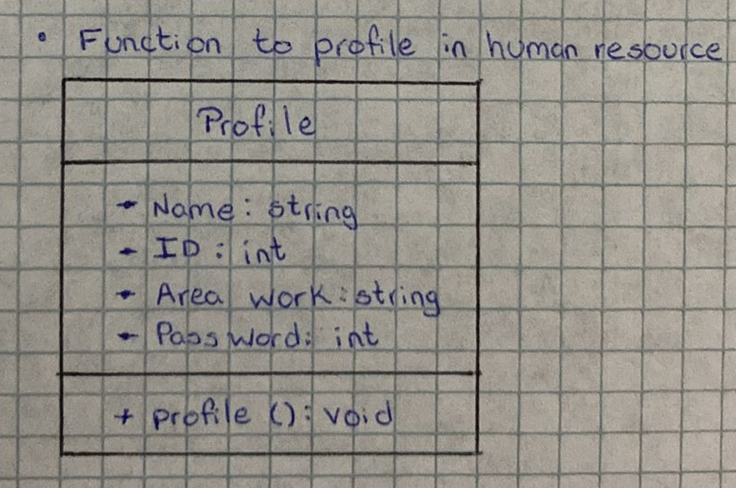 • Function to profile in human resource
Profile
- Name: string
- ID: int
- Area work: string
- Password: int
+ profile (): void